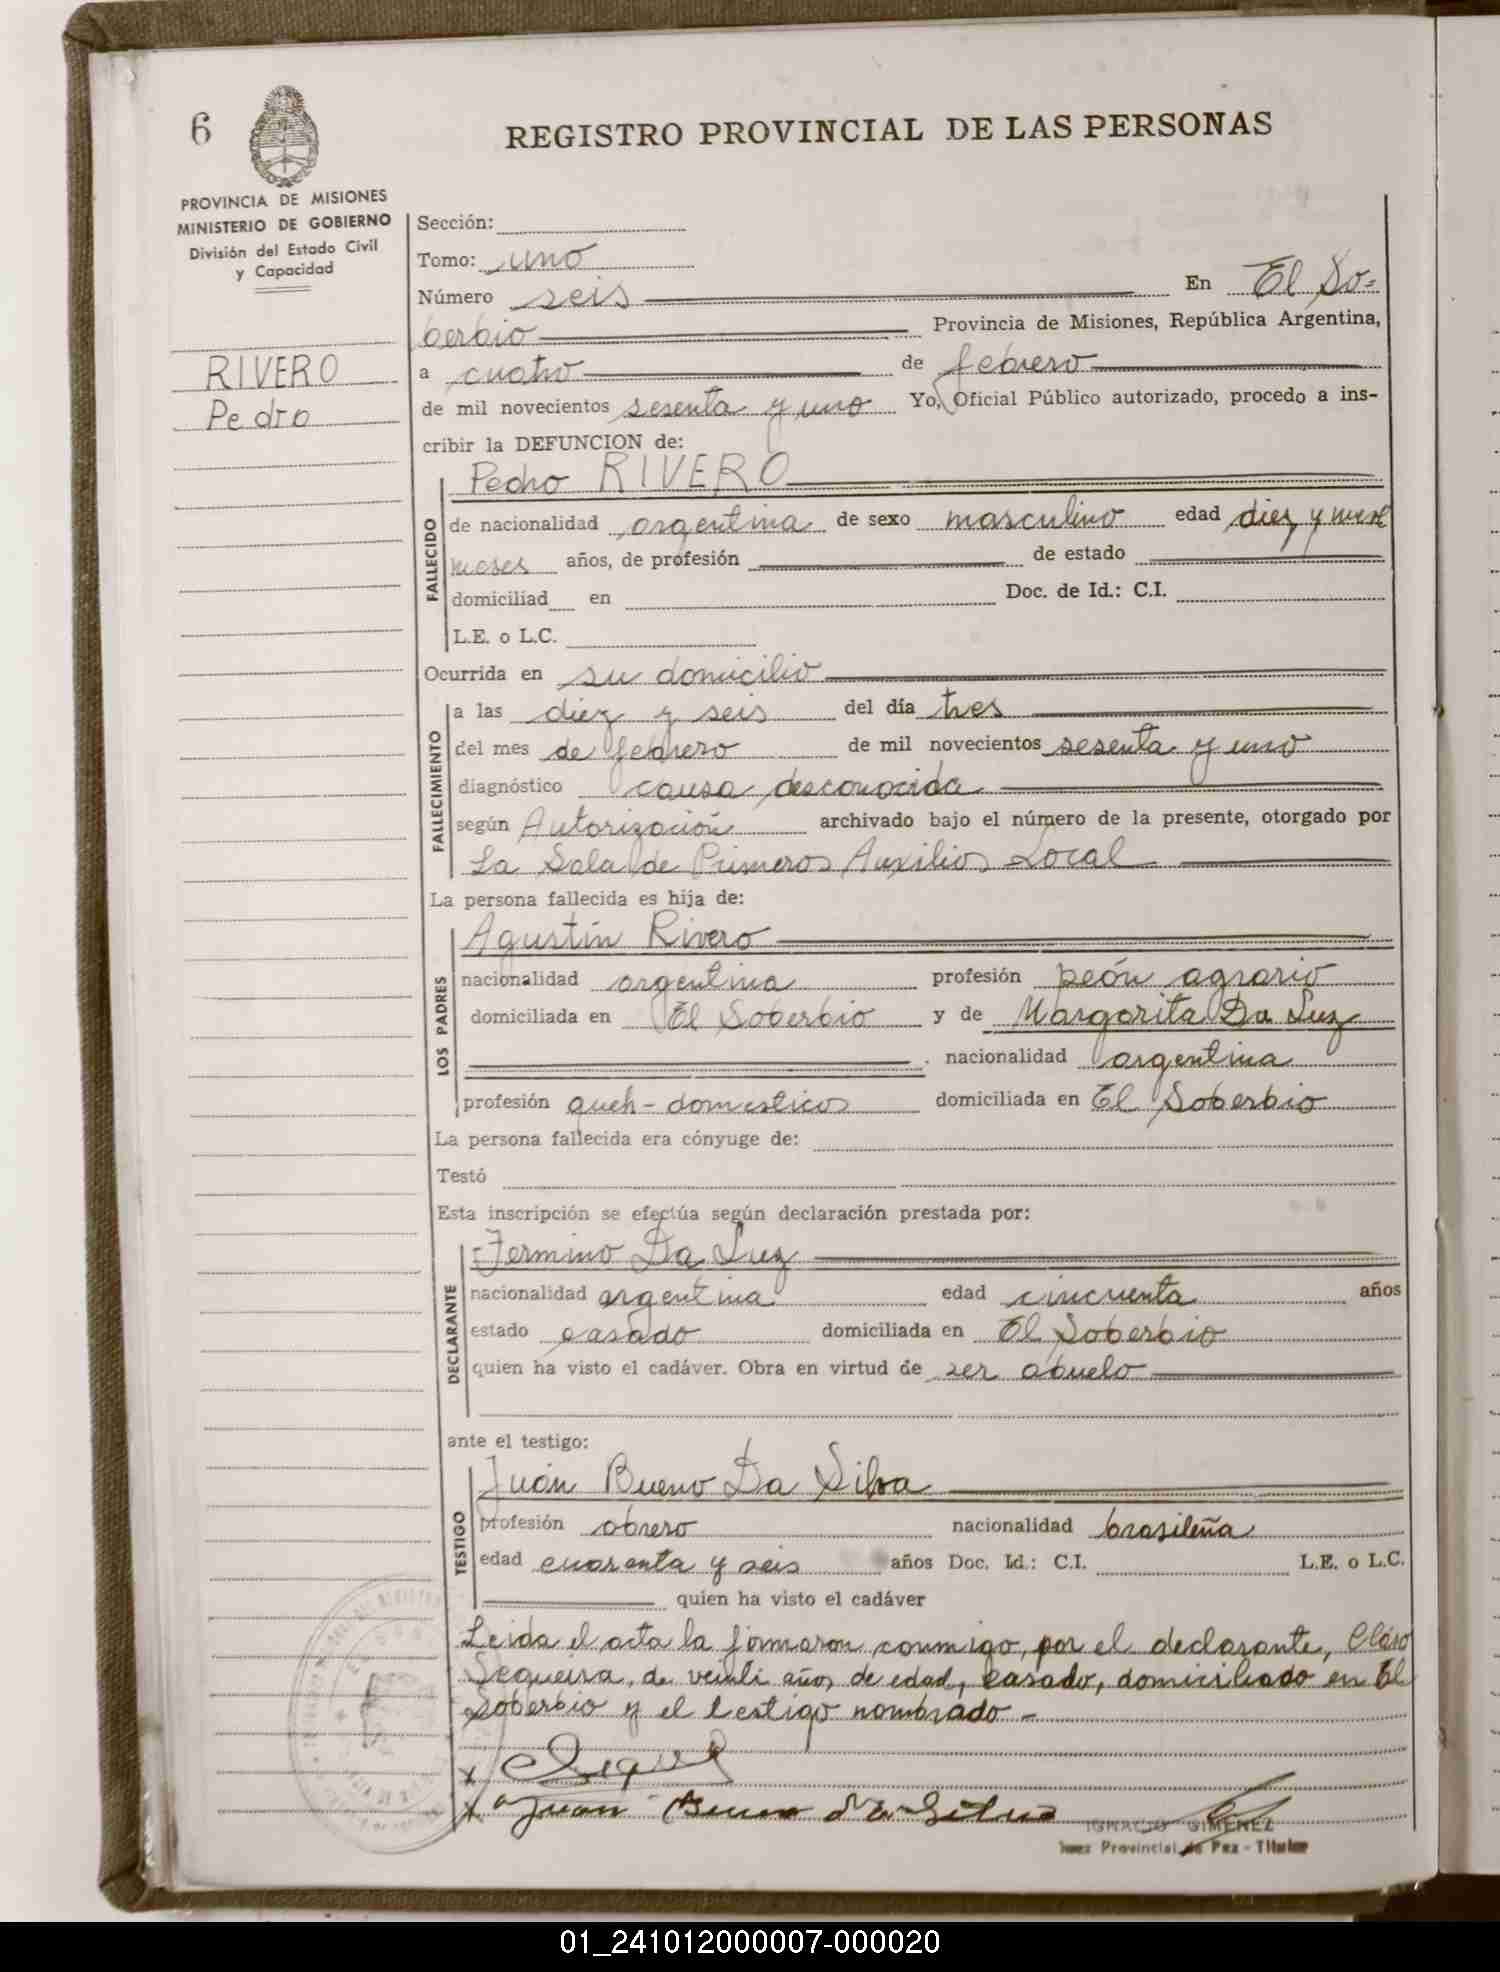 6
REGISTRO PROVINCIAL DE LAS PERSONAS
PROVINCIA DE MISIONES
MINISTERIO DE GOBIERNO
División del Estado Civil
y Capacidad
RIVERO
Pedro
Sección:
Tomo: uno
Número seis En El So-
berbio Provincia de Misiones, República Argentina,
a cuatro de febrero
de mil novecientos sesenta y uno Yo, Oficial Público autorizado, procedo a ins-
cribir la DEFUNCION de:
Pedro RIVERO
FALLECIDO
de nacionalidad argentina de sexo masculino edad diez y nueve
meses años, de profesión de estado
domiciliad en Doc. de Id.: C.I.
L.E. o L.C.
Ocurrida en su domicilio
FALLECIMIENTO
a las diez y seis del día tres
del mes de febrero de mil novecientos sesenta y uno
diagnóstico causa desconocida
según Autorización archivado bajo el número de la presente, otorgado por
La Sala de Primeros Auxilios Local
La persona fallecida es hija de:
LOS PADRES
Agustín Rivero
nacionalidad argentina profesión peón agrario
domiciliada en El Soberbio y de Margarita Da Luz
nacionalidad argentina
profesión queh-domesticos domiciliada en El Soberbio
La persona fallecida era cónyuge de:
Testó
Esta inscripción se efectúa según declaración prestada por:
DECLARANTE
Fermino Da Luz
nacionalidad argentina edad cincuenta años
estado casado domiciliada en El Soberbio
quien ha visto el cadáver. Obra en virtud de ser abuelo
ante el testigo:
TESTIGO
Juan Bueno Da Silva
profesión obrero nacionalidad brasileña
edad cuarenta y seis años Doc. Id.: C.I. L.E. o L.C.
quien ha visto el cadáver
Leida el acta la firmaron conmigo, por el declarante, Claro
Sequeira, de veinti años de edad, casado, domiciliado en El
Soberbio y el testigo nombrado -
x
x Juan Bueno da Silva
IGNACIO GIMENEZ
Juez Provincial de Paz - Titular
01_241012000007-000020